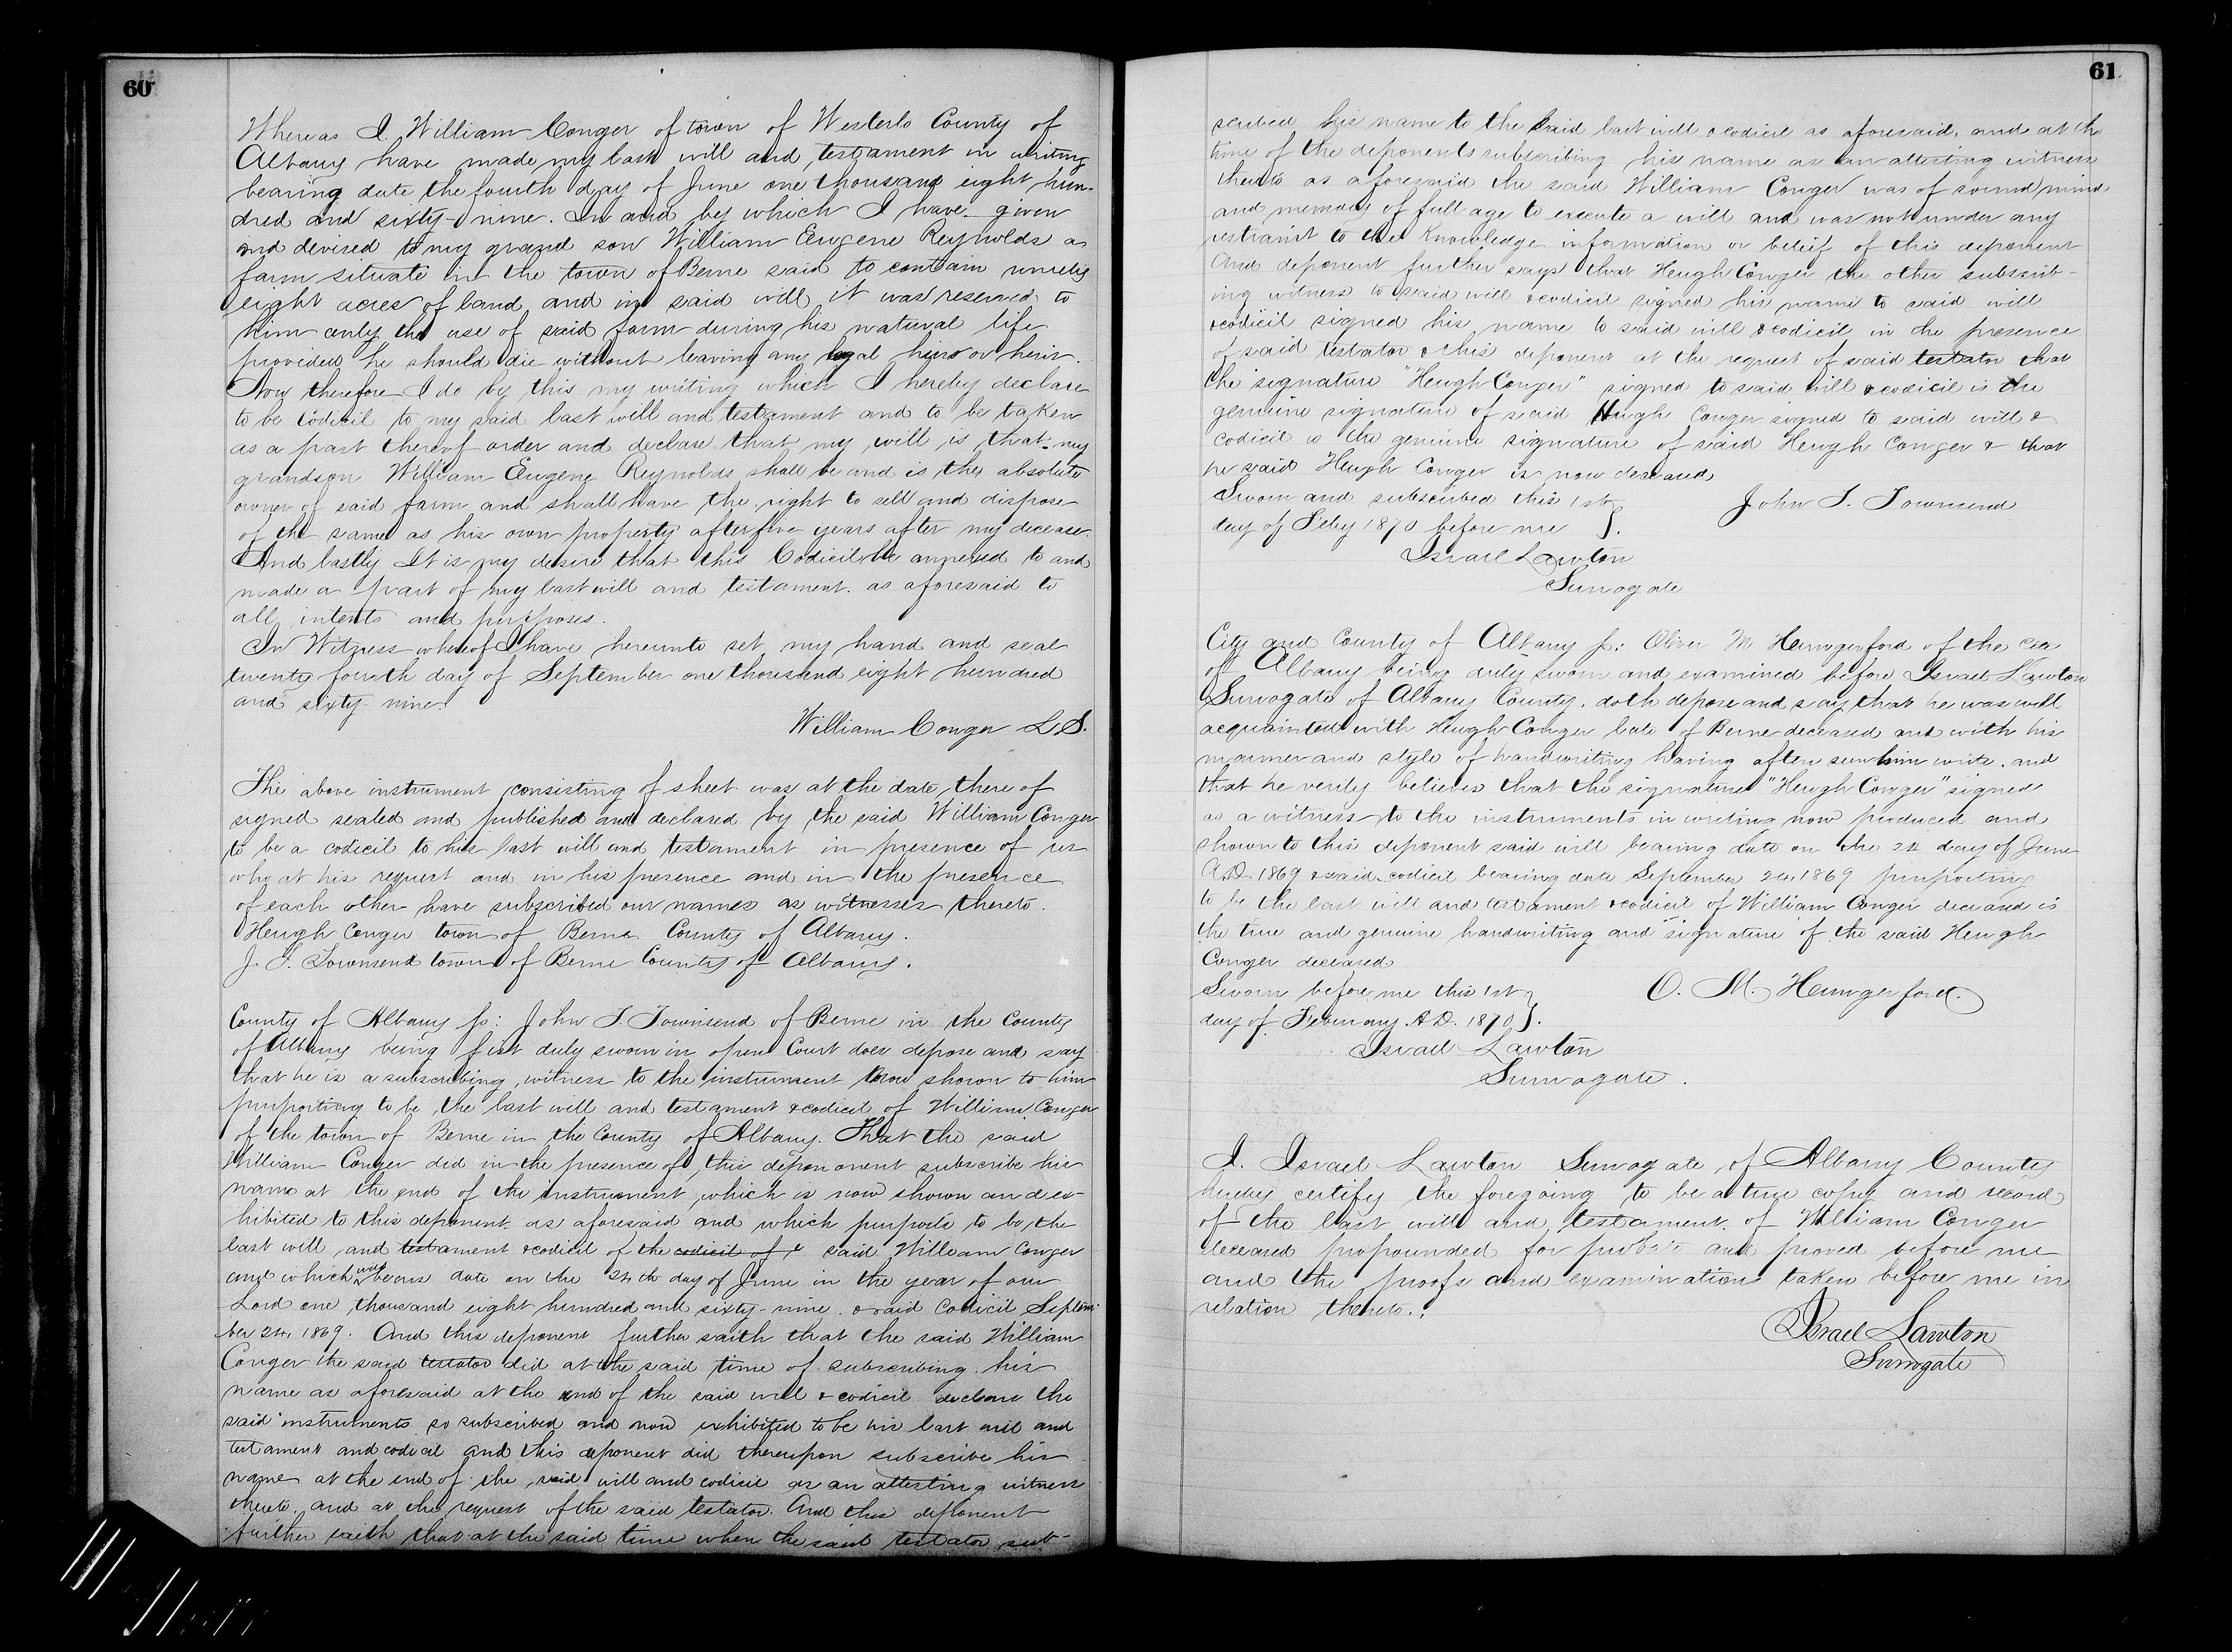 60
Whereas I, William Conger of town of Westerlo County of
Albany have made my last will and testament in writing
bearing date the fourth day of June one thousand eight hun-
dred and sixty-nine. In and by which I have given
and devised to my grand son William Eugene Reynolds a
farm situate in the town of Berne said to contain ninety
eight acres of land, and in said will it was reserved to
him only the use of said farm during his natural life
provided he should die without leaving any legal heirs or heir.
Now therefore I do by this my writing which I hereby declare
to be codicil to my said last will and testament and to be taken
as a part thereof order and declare that my will is that my
grandson William Eugene Reynolds shall be and is the absolute
owner of said farm and shall have the right to sell and dispose
of the same as his own property after five years after my decease.
And lastly It is my desire that this Codicil be annexed to and
made a part of my last will and testament. as aforesaid to
all intents and purposes.
In Witness whereof I have hereunto set my hand and seal
twenty fourth day of September one thousand eight hundred
and sixty nine.
William Conger L S.
The above instrument consisting of sheet was at the date there of
signed sealed and published and declared by the said William Conger
to be a codicil to his last will and testament in presence of us
who at his request and in his presence and in the presence
of each other have subscribed our names as witnesses thereto.
Heugh Conger town of Berne County of Albany.
J. S. Townsend town of Berne County of Albany.
County of Albany ss: John S. Townsend of Berne in the County
of Albany being first duly sworn in open Court does depose and say
that he is a subscribing witness to the instrument now shown to him
purporting to be the last will and testament & codicil of William Conger
of the town of Berne in the County of Albany. That the said
William Conger did in the presence of this deponent subscribe his
name at the end of the instrument, which is now shown and ex-
hibited to this deponent as aforesaid and which purports to be the
last will and testament & codicil of the codicil of & said William Conger
and which will bears date on the 24th day of June in the year of our
Lord one thousand eight hundred and sixty-nine. & said Codicil Septem-
ber 24, 1869. And this deponent further saith that the said William
Conger the said testator did at the said time of subscribing his
name as aforesaid at the end of the said will & codicil declare the
said instruments so subscribed and now exhibited to be his last will and
testament and codicil and this deponent did thereupon subscribe his
name at the end of the said will and codicil as an attesting witness
thereto. and at the request of the said testator. And this deponent
further saith that at the said time when the said testator sub-
61
scribed his name to the said last will & codicil as aforesaid, and at the
time of the deponents subscribing his name as an attesting witness
thereto as aforesaid the said William Conger was of sound mind
and memory of full age to execute a will and was not under any
restraint to the knowledge information or belief of this deponent
And deponent further says that Heugh Conger the other subscrib-
ing witness to said will & codicil signed his name to said will
& codicil signed his name to said will & codicil in the presence
of said testator & this deponent at the request of said testator that
the signature "Heugh Conger" signed to said will & codicil is the
genuine signature of said Hugh Conger signed to said will &
codicil is the genuine signature of said Heugh Conger & that
he said Heugh Conger is now deceased
Sworn and subscribed this 1st
day of Feby 1870 before me
John S. Townsend
Israel Lawton
Surrogate
City and County of Albany ss: Oliver M Hungerford of the
of Albany being duly sworn and examined before Israel Lawton
Surrogate of Albany County. doth depose and say that he was well
acquainted with Heugh Conger late of Berne deceased and with his
manner and style of handwriting having often seen him write. and
that he verily believes that the signature "Heugh Conger" signed
as a witness to the instruments in writing now produced and
shown to this deponent said will bearing date on the 24 day of June
A.D. 1869 & said codicil bearing date September 24, 1869 purporting
to be the last will and testament & codicil of William Conger deceased is
the true and genuine handwriting and signature of the said Heugh
Conger deceased
Sworn before me this 1st
day of February A.D. 1870
O. M. Hungerford.
Israel Lawton
Surrogate.
I. Israel Lawton Surrogate of Albany County
hereby certify the foregoing to be a true copy and record
of the last will and testament. of William Conger
deceased propounded for probate and proved before me
and the proofs and examination taken before me in
relation thereto.
Israel Lawton
Surrogate